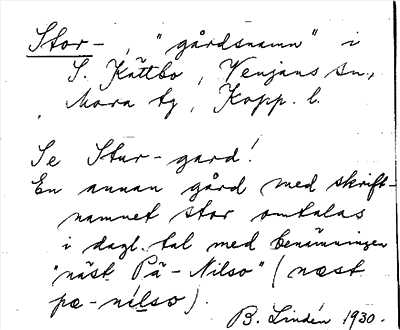 Stor-, "gårdsnamn" i
S. Kättbo, Venjans sn.,
Mora tg, Kopp. l.
Se Stur-gard!
En annan gård med skrift-
namnet stor omtalas
i dagl. tal med benämningen
"näst Pä-Nilso" (næst
pæ-nilso).
B. Lindén 1930.